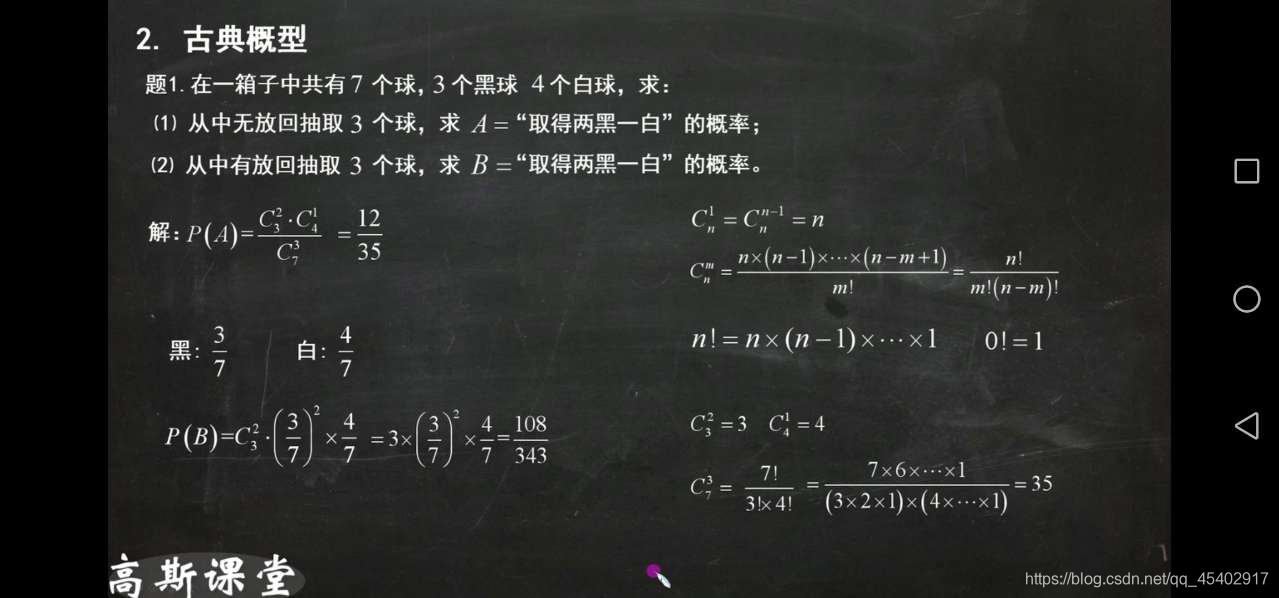 2. 古典概型
题1. 在一箱子中共有 7 个球, 3 个黑球 4 个白球, 求:
(1) 从中无放回抽取 3 个球, 求 A = “取得两黑一白” 的概率;
(2) 从中有放回抽取 3 个球, 求 B = “取得两黑一白” 的概率。
解: P(A) = \frac{C_3^2 \cdot C_4^1}{C_7^3} = \frac{12}{35}
黑: \frac{3}{7} 白: \frac{4}{7}
P(B) = C_3^2 \cdot \left(\frac{3}{7}\right)^2 \times \frac{4}{7} = 3 \times \left(\frac{3}{7}\right)^2 \times \frac{4}{7} = \frac{108}{343}
C_n^1 = C_n^{n-1} = n
C_n^m = \frac{n \times (n-1) \times \cdots \times (n-m+1)}{m!} = \frac{n!}{m!(n-m)!}
n! = n \times (n-1) \times \cdots \times 1 0! = 1
C_3^2 = 3 C_4^1 = 4
C_7^3 = \frac{7!}{3! \times 4!} = \frac{7 \times 6 \times \cdots \times 1}{(3 \times 2 \times 1) \times (4 \times \cdots \times 1)} = 35
高斯课堂
https://blog.csdn.net/qq_45402917